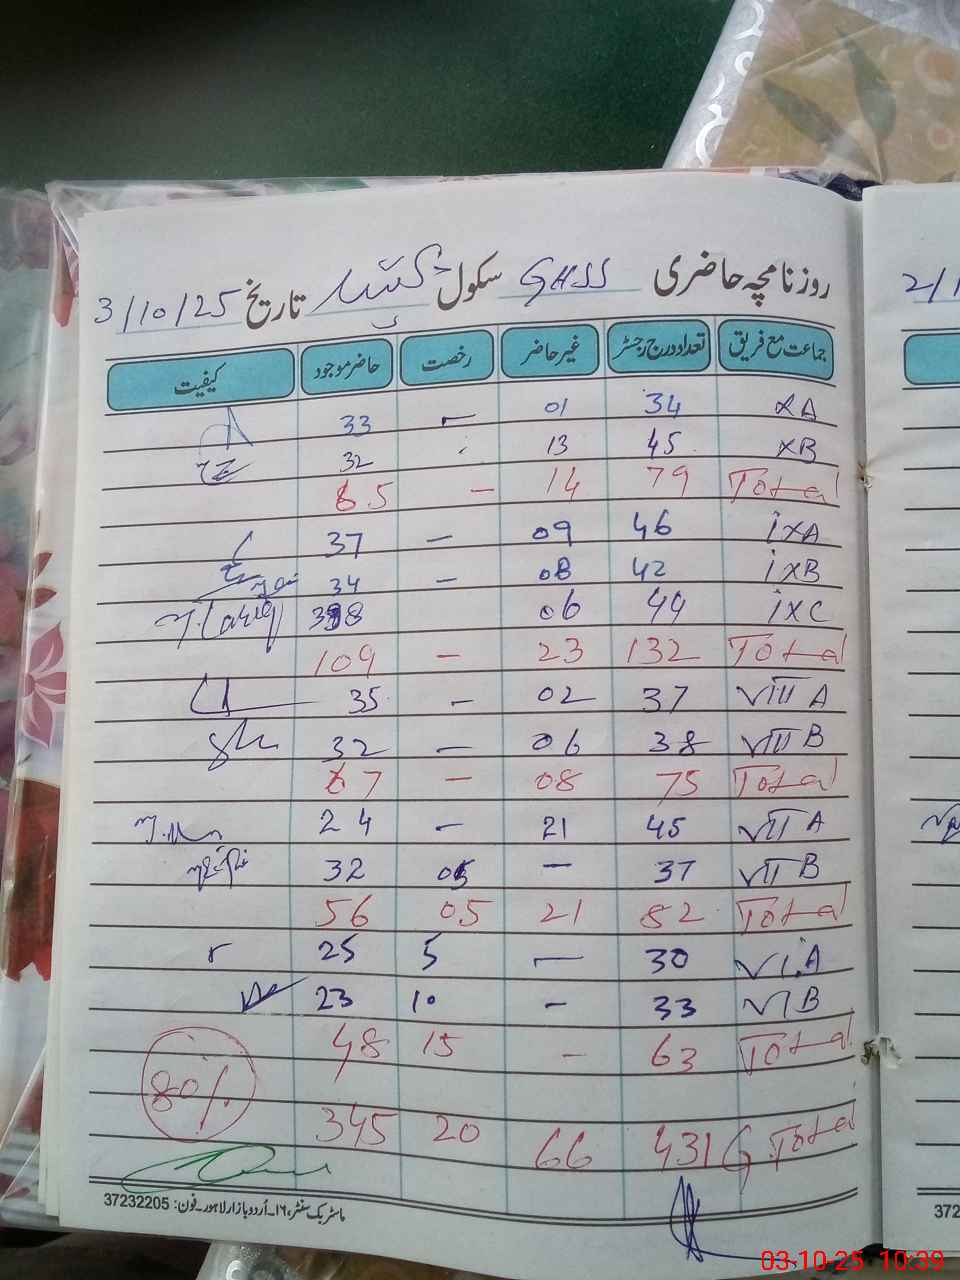 روزنامچہ حاضری GHSS سکول تاریخ 3/10/25
جماعت مع فریق تعداد درج رجسٹر غیر حاضر رخصت حاضر موجود کیفیت
XA 34 01 – 33
XB 45 13 32
Total 79 14 – 65
ixA 46 09 – 37
ixB 42 08 – 34
ixC 44 06 38
Total 132 23 – 109
VIII A 37 02 – 35
VIII B 38 06 – 32
Total 75 08 – 67
VII A 45 21 – 24
VII B 37 – 05 32
Total 82 21 05 56
VI.A 30 – 5 25
VI B 33 – 10 23
Total 63 – 15 48
80%
G Total 431 66 20 345
ماسٹر بک سنٹر، ۱۶۔ اُردو بازار لاہور۔ فون: 37232205
2/1
372
03-10-25 10:39